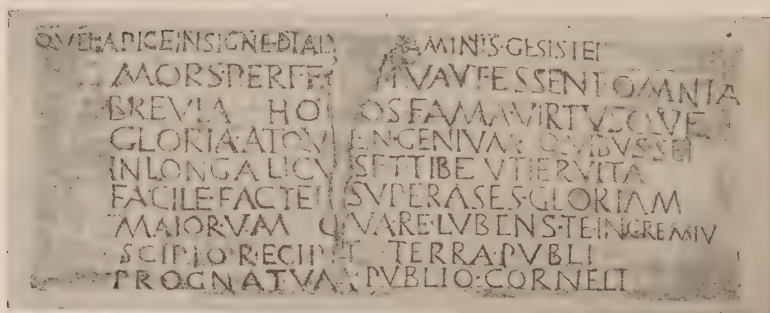 QVEI·APICE·INSIGNE·DIAL AMINIS·GESISTEI
MORS·PERFEC TVA·VT·ESSENT·OMNIA
BREVIA HONOS·FAMA·VIRTVSQVE
GLORIA·ATQVE INGENIVM QVIBVS·SEI
IN·LONGA·LICVISET·TIBE VTIER·VITA
FACILE·FACTEIS SVPERASES·GLORIAM
MAIORVM QVARE·LVBENS·TE·IN·GREMIV
SCIPIO·RECIPIT TERRA·PVBLI
PROGNATVM PVBLIO·CORNELI